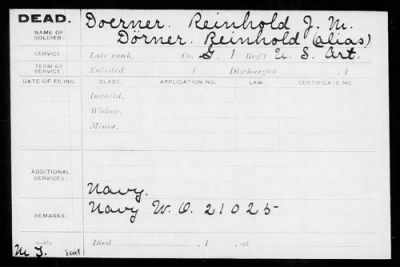 DEAD. Doerner. Reinhold J. M.
NAME OF SOLDIER: Dörner. Reinhold (alias)
SERVICE: Late rank, Co. G. 1 Reg't U. S. Art.
TERM OF SERVICE: Enlisted , 1 Discharged , 1
DATE OF FILING. CLASS. APPLICATION NO. LAW. CERTIFICATE NO.
Invalid,
Widow,
Minor,
ADDITIONAL SERVICES:
Navy.
REMARKS: Navy W. O. 21025
Died , 1 , at